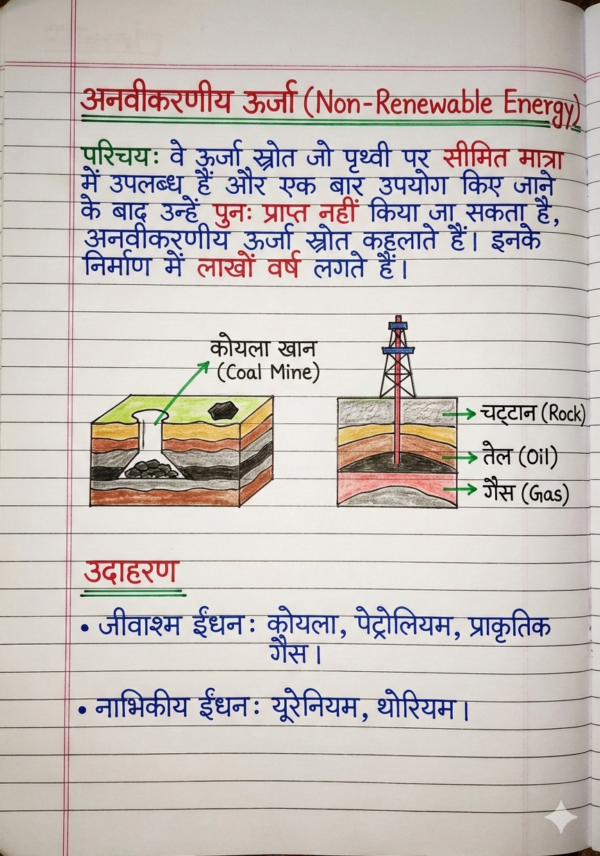 अनवीकरणीय ऊर्जा (Non-Renewable Energy)
परिचय: वे ऊर्जा स्रोत जो पृथ्वी पर सीमित मात्रा
में उपलब्ध हैं और एक बार उपयोग किए जाने
के बाद उन्हें पुनः प्राप्त नहीं किया जा सकता है,
अनवीकरणीय ऊर्जा स्रोत कहलाते हैं। इनके
निर्माण में लाखों वर्ष लगते हैं।
कोयला खान
(Coal Mine)
चट्टान (Rock)
तेल (Oil)
गैस (Gas)
उदाहरण
• जीवाश्म ईंधन: कोयला, पेट्रोलियम, प्राकृतिक
गैस।
• नाभिकीय ईंधन: यूरेनियम, थोरियम।